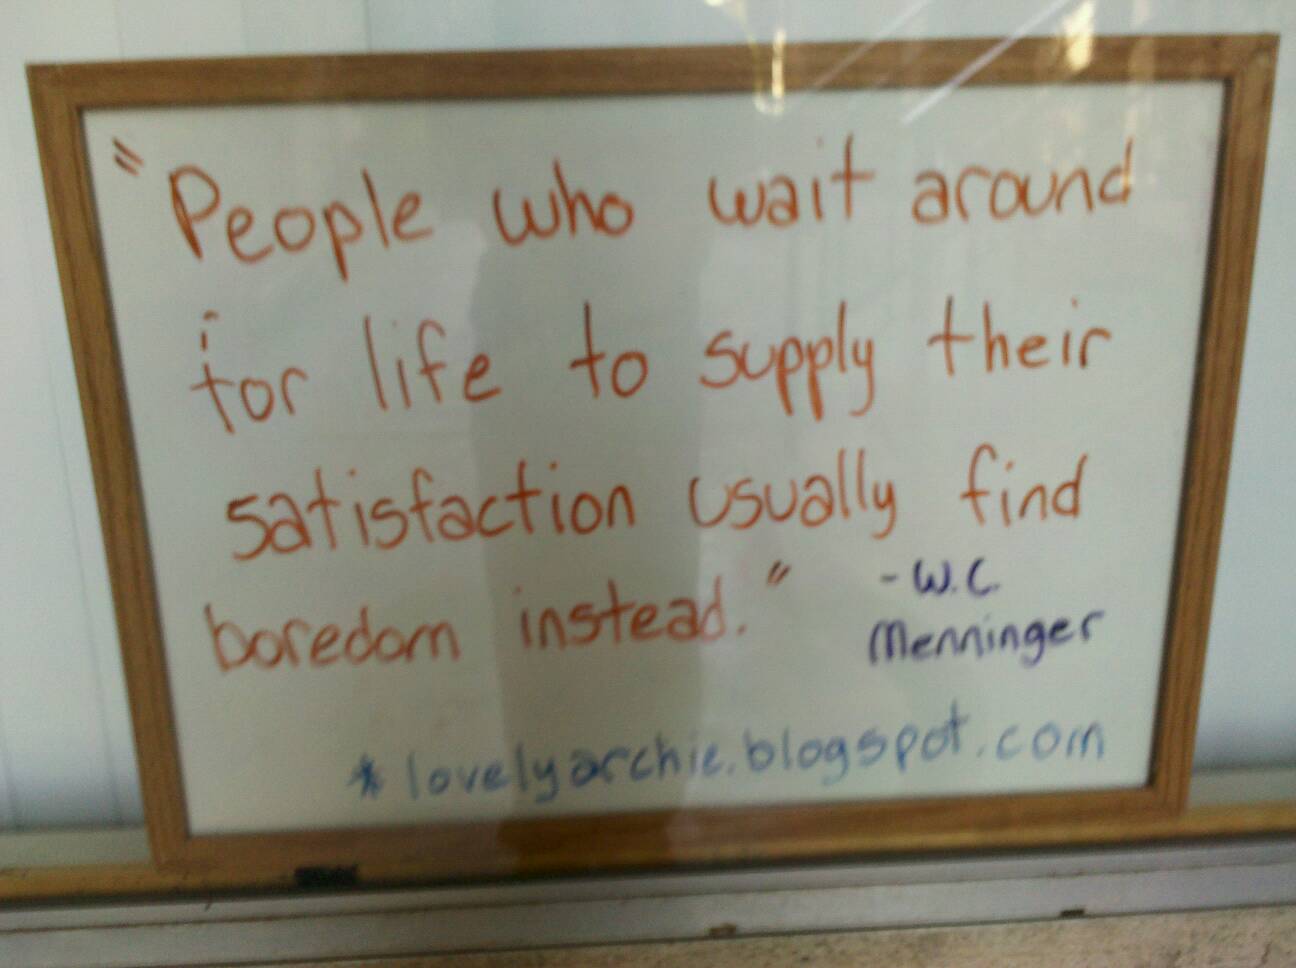 "People who wait around
for life to supply their
satisfaction usually find
boredom instead." - W.C.
Menninger
* lovelyarchie.blogspot.com